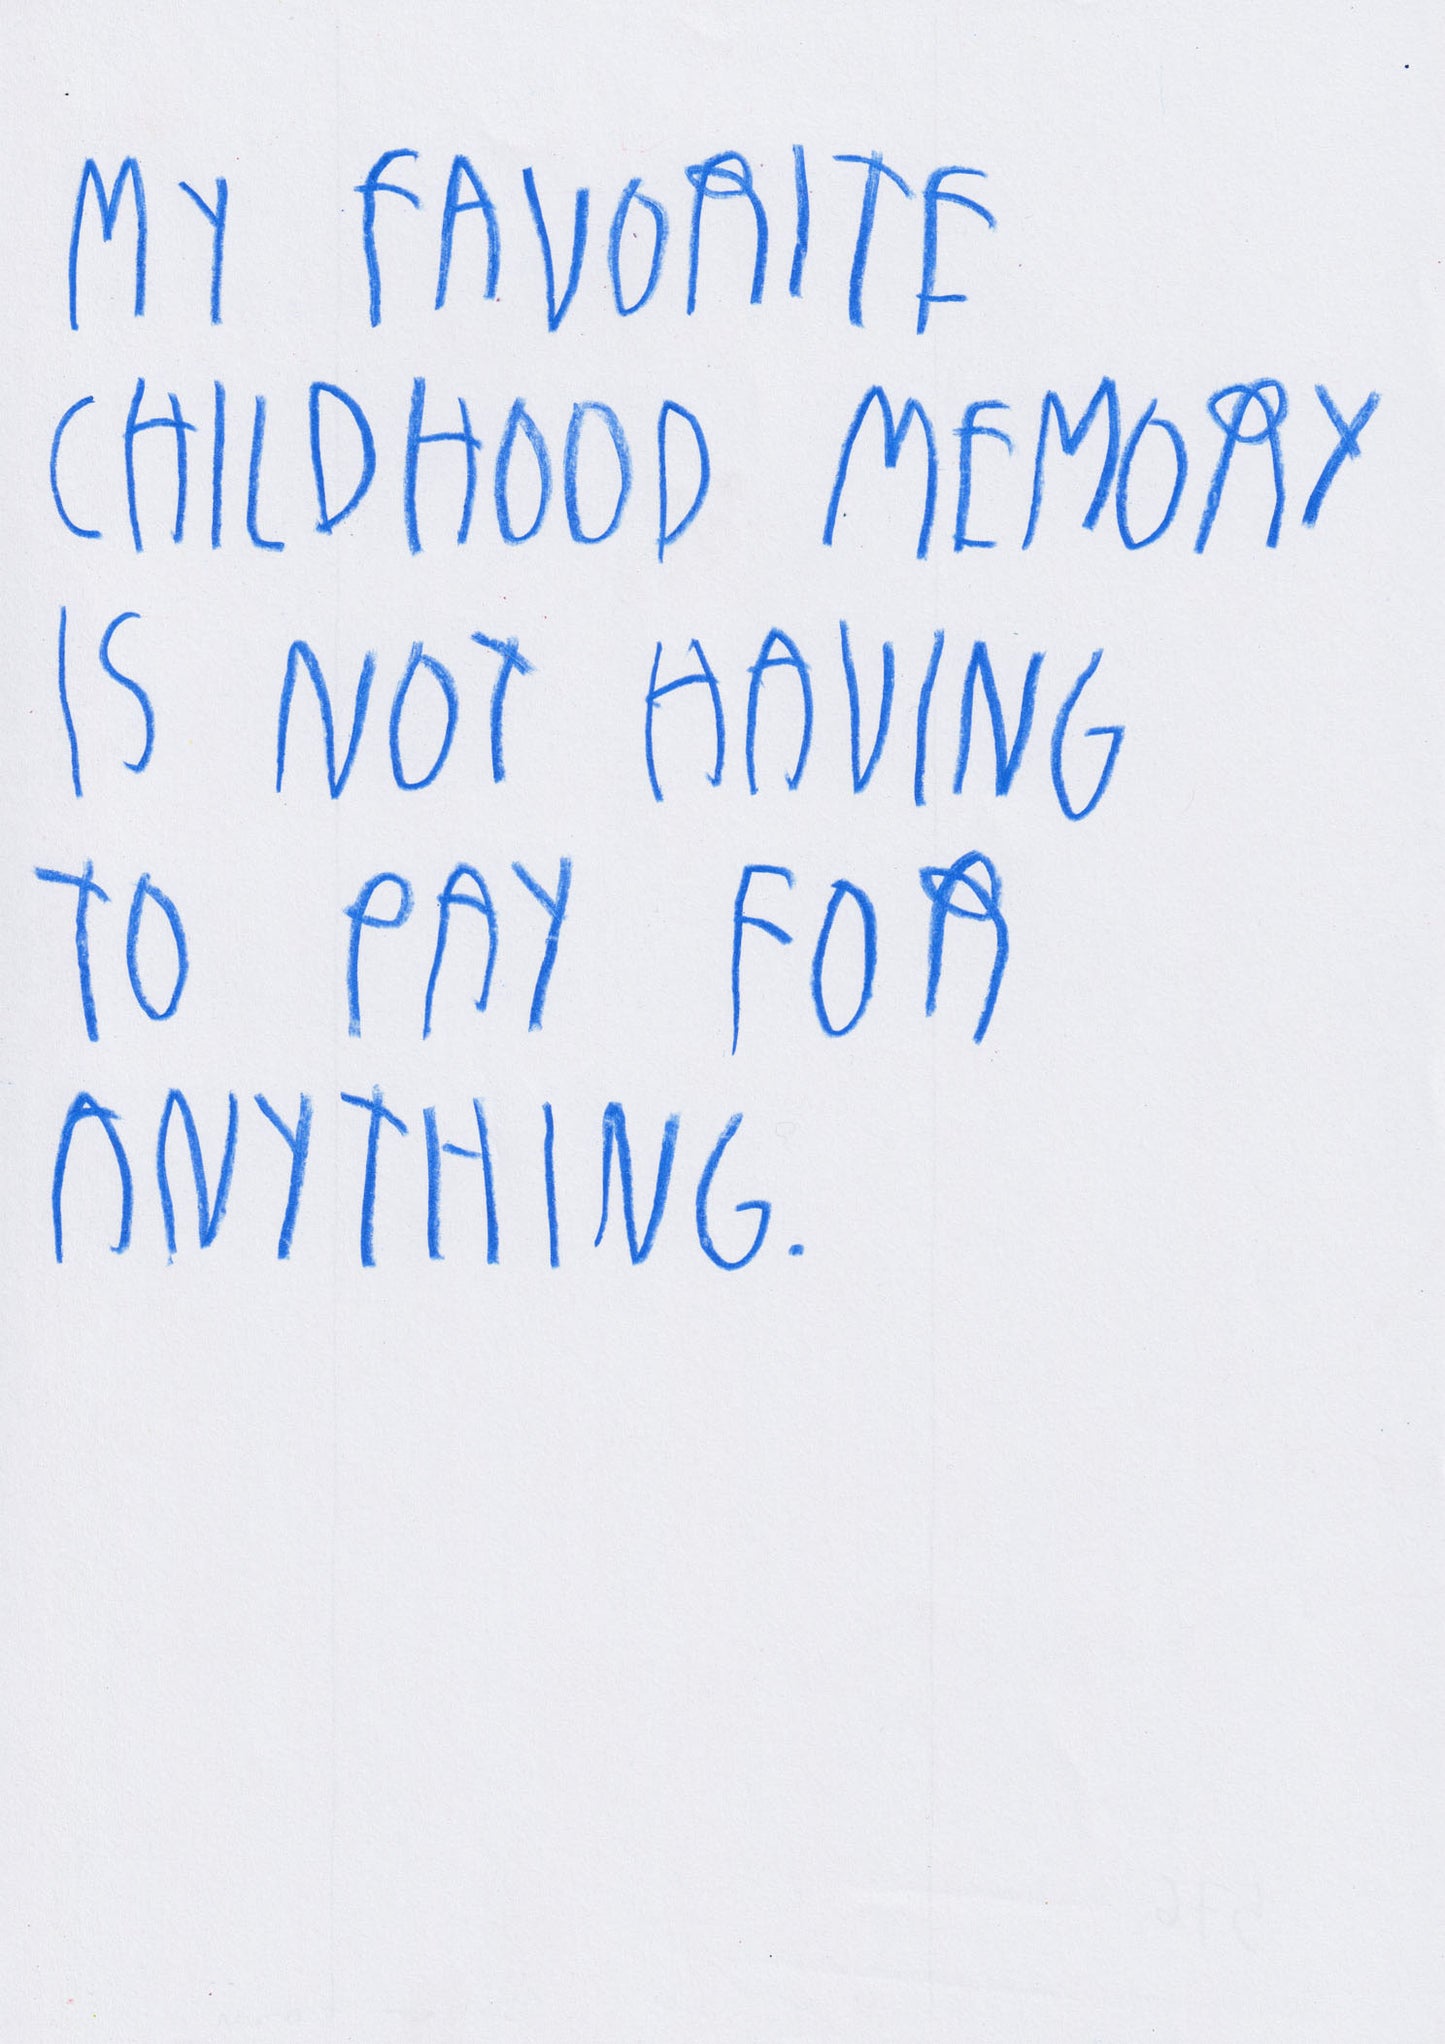 MY FAVORITE
CHILDHOOD MEMORY
IS NOT HAVING
TO PAY FOR
ANYTHING.